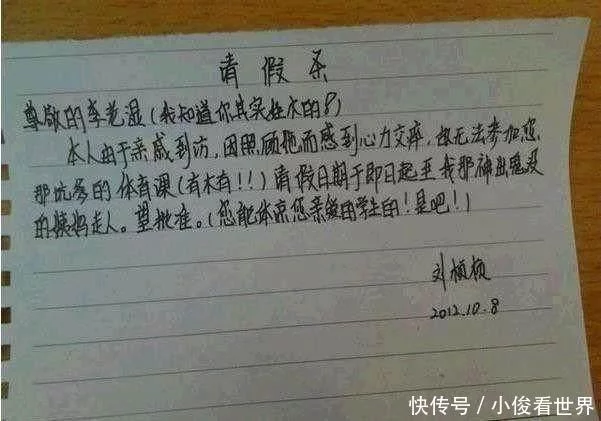 请假条
尊敬的李老湿(我知道你其实姓水的!)
本人由于亲戚到访,因照顾他而感到心力交瘁,故无法参加您
那坑爹的体育课(有木有!!)请假日期于即日起至我那神出鬼没
的姨妈走人。望批准。(您能体谅您亲爱的学生的!是吧!)
刘桢桢
2012.10.8
快传号/小俊看世界